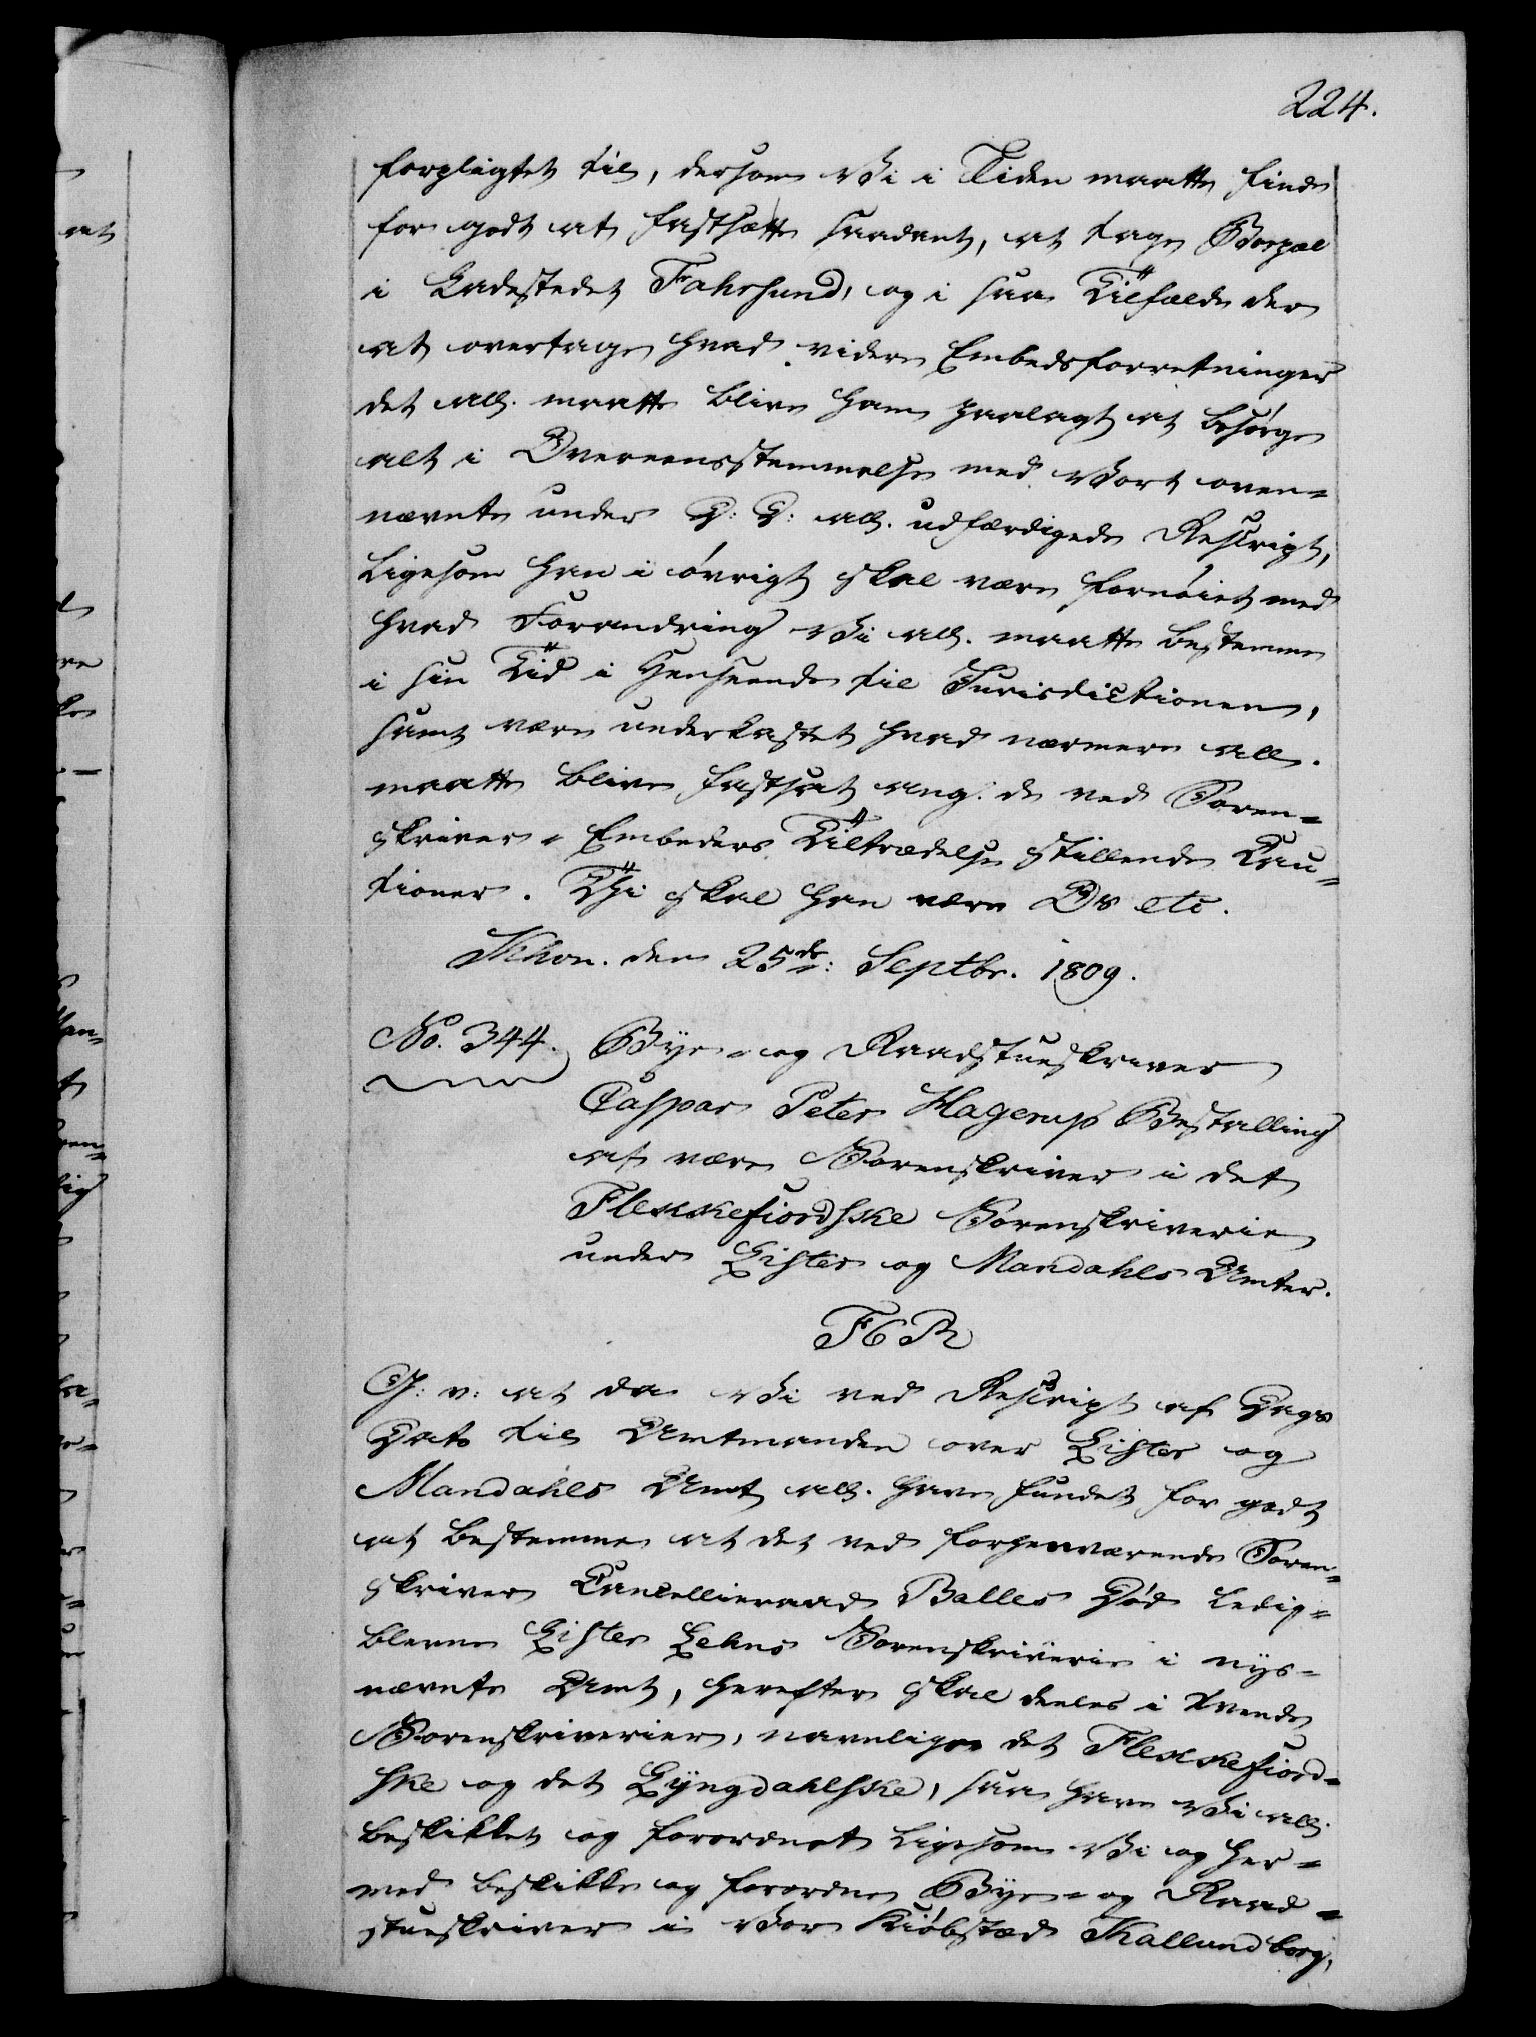 224.
forpligtet til, dersom Vi i Tiden maatte finde
for godt at fastsætte saadant, at tage Boepæl
i Ladestedet Fahrsund, og i saa Tilfælde der
at overtage hvad videre Embedsforretninger
det all. maatte blive ham paalagt at besørge
alt i Overeensstemmelse med Vort oven-
nævnte under D: D: all. udfærdigede Rescript,
Ligesom han i øvrigt skal være fornøiet med
hvad Forandring Vi all. maatte bestemme
i sin Tid i Henseende til Jurisdictionen,
samt være underkastet hvad nærmere all.
maatte blive fastsat ang. de ved Soren-
skriver-Embeders Tiltrædelse stillende Cau-
tioner. Thi skal han være Os etc.
Khvn. den 25de: Septbr. 1809.
No. 344. Bye- og Raadstueskriver
Caspar Peter Hagerup Bestalling
at være Sorenskriver i det
Flekkefiordske Sorenskriverie
under Lister og Mandahls Amter.
F6R
G: v: at da Vi ved Rescript af Dags
Dato til Amtmanden over Lister og
Mandahls Amt all. have fundet for godt
at bestemme at det ved forhenværende Soren-
skriver Cancellieraad Balles Død ledig-
blevne Lister Lehns Sorenskriverie i nys-
nævnte Amt, herefter skal deeles i tvende
Sorenskriverier, navnligen det Flekkefiord-
ske og det Lyngdahlske, saa have Vi all.
beskikket og forordnet ligesom Vi og her-
med beskikke og forordne Bye- og Raad-
stueskriver i Vor Kiøbstæd Kallundborg,